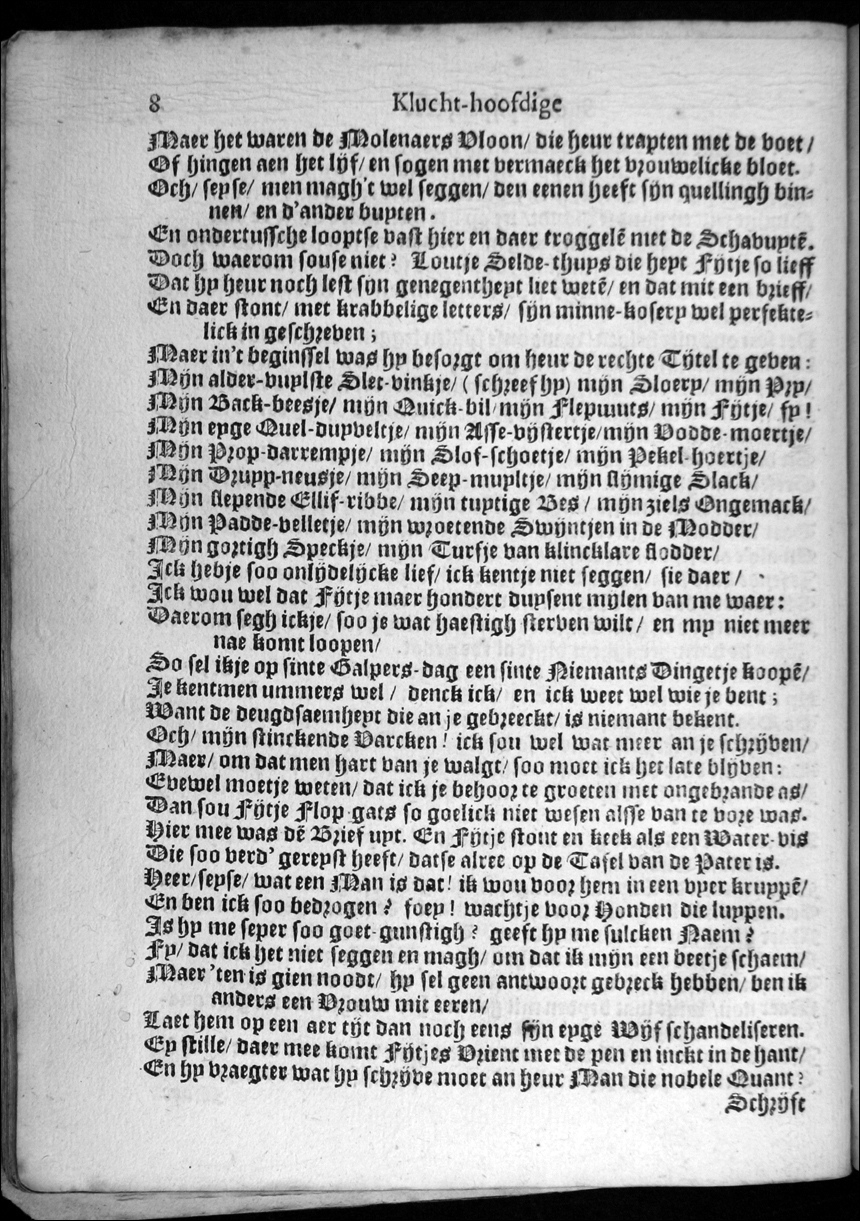 8 Klucht-hoofdige
Maer het waren de Molenaers Vloon/ die heur trapten met de voet/
Of hingen aen het lijf/ en sogen met vermaeck het vrouwelicke bloet.
Och/ seyse/ men magh't wel seggen/ den eenen heeft sijn quellingh bin-
nen/ en d'ander buyten.
En ondertussche looptse vast hier en daer troggelē met de Schavuytē.
Doch waerom souse niet? Loutje Selde-thuys die heyt Fijtje so lieff
Dat hy heur noch lest sijn genegentheyt liet wetē/ en dat mit een brieff/
En daer stont/ met krabbelige letters/ sijn minne-kosery wel perfekte-
lick in geschreven;
Maer in't beginssel was hy besorgt om heur de rechte Tijtel te geven:
Mijn alder-vuylste Slet-vinkje/ (schreef hy) mijn Sloery/ mijn Pry/
Mijn Back-beesje/ mijn Quick-bil/ mijn Flepmuts/ mijn Fijtje/ fy!
Mijn eyge Quel-duyveltje/ mijn Asse-vijstertje/ mijn Vodde-moertje/
Mijn Prop-darrempje/ mijn Slof-schoetje/ mijn Pekel-hoertje/
Mijn Drupp-neusje/ mijn Seep-muyltje/ mijn slijmige Slack/
Mijn slepende Ellif-ribbe/ mijn tuytige Bes/ mijn ziels Ongemack/
Mijn Padde-velletje/ mijn wroetende Swijntjen in de Modder/
Mijn gortigh Speckje/ mijn Turfje van klincklare slodder/
Ick hebje soo onlijdelijcke lief/ ick kentje niet seggen/ sie daer/
Ick wou wel dat Fijtje maer hondert duysent mylen van me waer:
Daerom segh ickje/ soo je wat haestigh sterven wilt/ en my niet meer
nae komt loopen/
So sel ikje op sinte Galpers-dag een sinte Niemants Dingetje koopē/
Je kentmen ummers wel/ denck ick/ en ick weet wel wie je bent;
Want de deugdsaemheyt die an je gebreeckt/ is niemant bekent.
Och/ mijn stinckende Varcken! ick sou wel wat meer an je schrijven/
Maer/ om dat men hart van je walgt/ soo moet ick het late blijven:
Evewel moetje weten/ dat ick je behoor te groeten met ongebrande as/
Dan sou Fijtje Flop-gats so goelick niet wesen alsse van te vore was.
Hier mee was dē Brief uyt. En Fijtje stont en keek als een Water-vis
Die soo verd' gereyst heeft/ datse alree op de Tafel van de Pater is.
Heer/ seyse/ wat een Man is dat! ik wou voor hem in een vyer kruypē/
En ben ick soo bedrogen? foey! wachtje voor Honden die luypen.
Is hy me seper soo goet-gunstigh? geeft hy me sulcken Naem?
Fy/ dat ick het niet seggen en magh/ om dat ik mijn een beetje schaem/
Maer 'ten is gien noodt/ hy sel geen antwoort gebreck hebben/ ben ik
anders een Vrouw mit eeren/
Laet hem op een aer tijt dan noch eens sijn eyge Wijf schandeliseren.
Ey stille/ daer mee komt Fijtjes Vrient met de pen en inckt in de hant/
En hy vraegter wat hy schrijve moet an heur Man die nobele Quant?
Schrijft